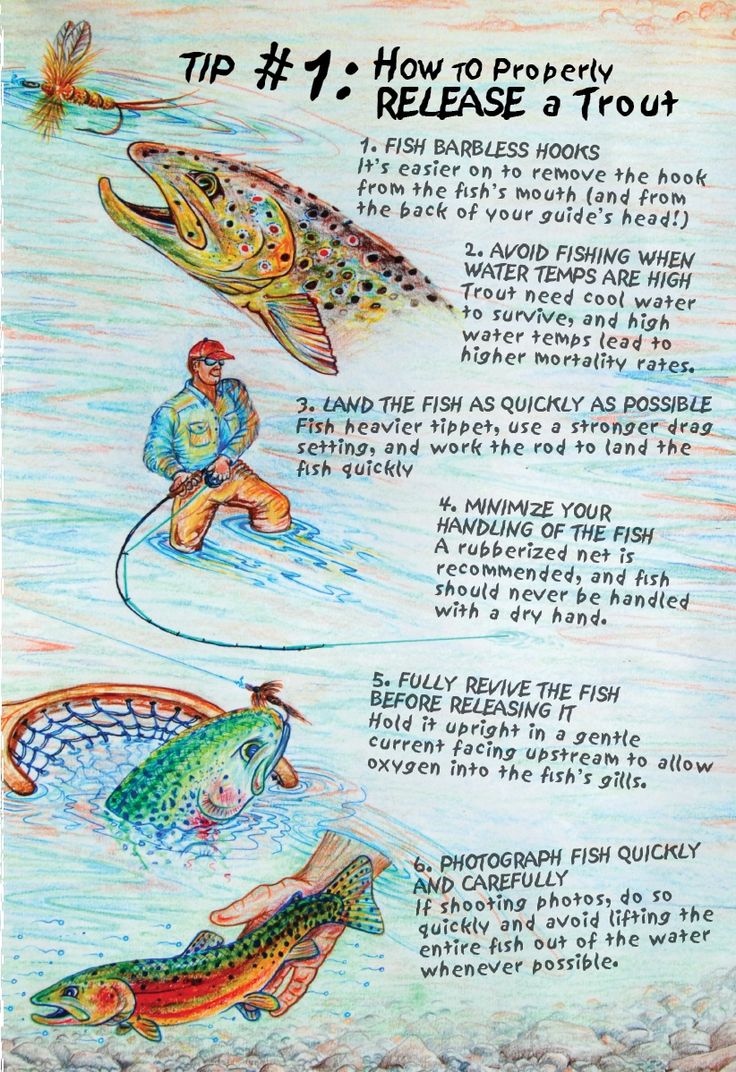 TIP #1: How to Properly
RELEASE a Trout
1. FISH BARBLESS HOOKS
It's easier on to remove the hook
from the fish's mouth (and from
the back of your guide's head!)
2. AVOID FISHING WHEN
WATER TEMPS ARE HIGH
Trout need cool water
to survive, and high
water temps lead to
higher mortality rates.
3. LAND THE FISH AS QUICKLY AS POSSIBLE
Fish heavier tippet, use a stronger drag
setting, and work the rod to land the
fish quickly
4. MINIMIZE YOUR
HANDLING OF THE FISH
A rubberized net is
recommended, and fish
should never be handled
with a dry hand.
5. FULLY REVIVE THE FISH
BEFORE RELEASING IT
Hold it upright in a gentle
current facing upstream to allow
oxygen into the fish's gills.
6. PHOTOGRAPH FISH QUICKLY
AND CAREFULLY
If shooting photos, do so
quickly and avoid lifting the
entire fish out of the water
whenever possible.